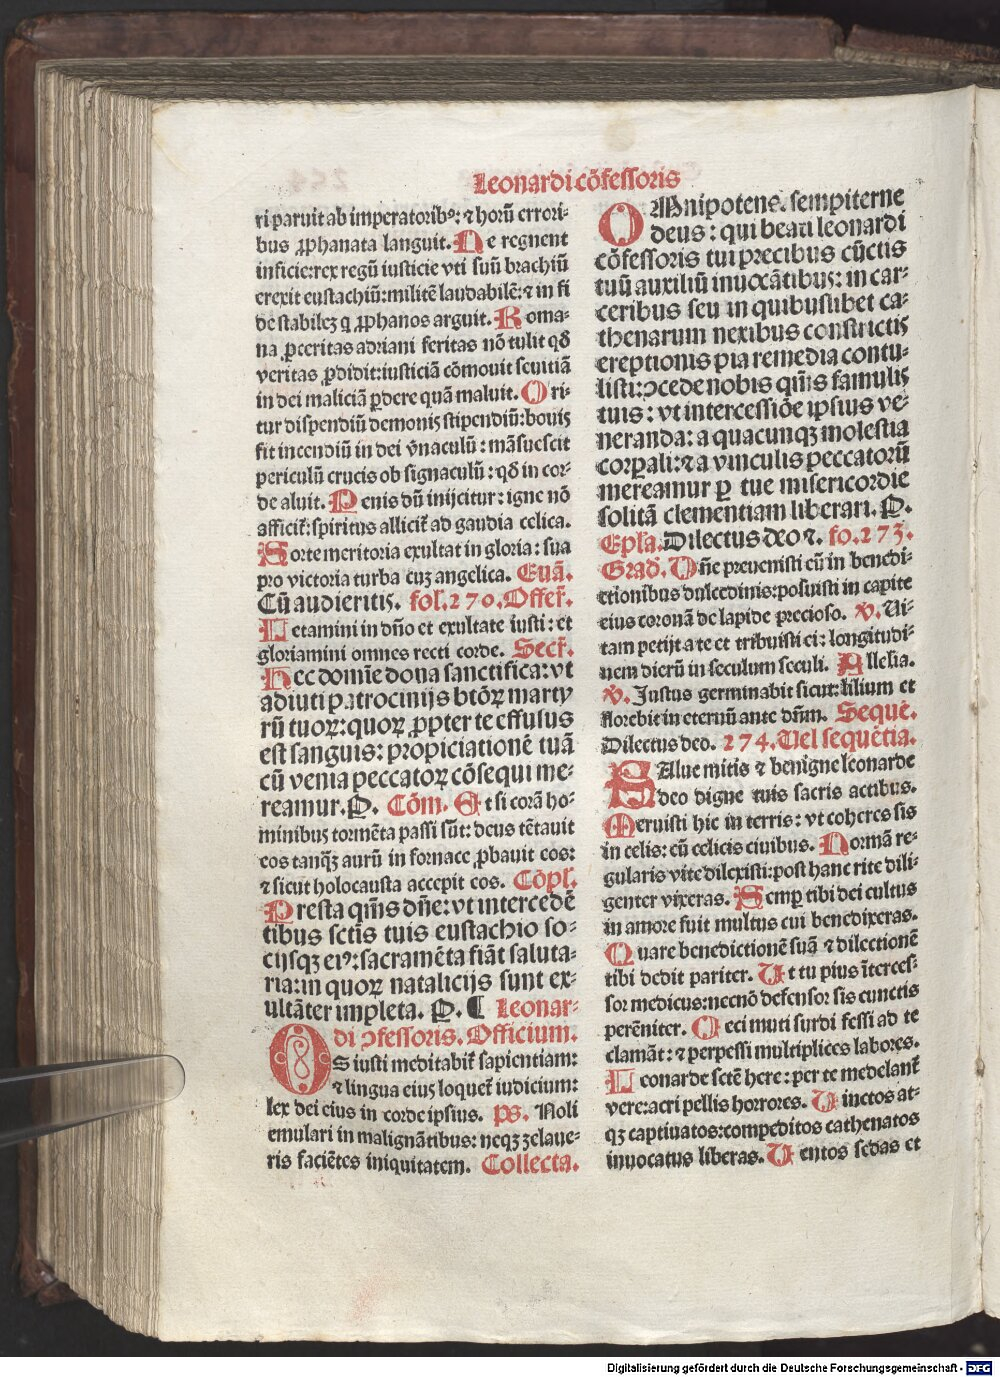 Leonardi cōfessoris
ri paruit ab imperatoribꝰ: ⁊ horū errori-
bus ꝓphanata languit. Ne regnent
inficie: rex regū iusticie vti suū brachiū
erexit eustachiū: militē laudabilē: ⁊ in fi
de stabileꝫ q ꝓphanos arguit. Roma-
na ꝓceritas adriani feritas nō tulit qđ
veritas ꝓdidit: iusticiā cōmouit seuitiā
in dei maliciā ꝑdere quā maluit. Ori-
tur dispendiū demonis stipendiū: bouis
fit incendiū in dei v̄naculū: māsuescit
periculū crucis ob signaculū: qđ in cor-
de aluit. Penis dū inijcitur: igne nō
afficit̄: spiritus allicit̄ ad gaudia celica.
Sorte meritoria exultat in gloria: sua
pro victoria turba cuꝫ angelica. Euā.
Cū audieritis. fol. 270. Offer̄.
Letamini in dn̄o et exultate iusti: et
gloriamini omnes recti corde. Secr̄.
Hec domīe dona sanctifica: vt
adiuti patrocinijs btōꝝ marty
rū tuoꝝ: quoꝝ ꝓpter te effusus
est sanguis: propiciationē tuā
cū venia peccatoꝝ cōsequi me-
reamur. P. Cōm. Et si corā ho-
minibus tormēta passi sūt: deus tētauit
eos tanqꝫ aurū in fornace ꝓbauit eos:
⁊ sicut holocausta accepit eos. Cōpl̄.
Presta qm̄s dn̄e: vt intercedē
tibus sctis tuis eustachio so-
cijsqꝫ eiꝰ: sacramēta fiāt saluta-
ria: in quoꝝ natalicijs sunt ex-
ultāter impleta. P. ¶ Leonar-
di ↄfessoris. Officium.
OS iusti meditabit̄ sapientiam:
⁊ lingua eius loquet̄ iudicium:
lex dei eius in corde ipsius. ps. Noli
emulari in malignātibus: neqꝫ zelaue-
ris faciētes iniquitatem. Collecta.
OMnipotens sempiterne
deus: qui beati leonardi
cōfessoris tui precibus cūctis
tuū auxiliū inuocātibus: in car-
ceribus seu in quibusubet ca-
thenarum nexibus constrictis
ereptionis pia remedia contu-
listi: ↄcede nobis qm̄s famulis
tuis: vt intercessiōe ipsius ve-
neranda: a quacunqꝫ molestia
corpali: ⁊ a vinculis peccatorū
mereamur ꝑ tue misericordie
solitā clementiam liberari. P.
Epl̄a. Dilectus deo ⁊. fo. 273.
Grad̄. Dn̄e preuenisti eū in benedi-
ctionibus dulcedinis: posuisti in capite
eius coronā de lapide precioso. ꝟ. Ui-
tam petijt a te et tribuisti ei: longitudi-
nem dierū in seculum seculi. Allelia.
ꝟ. Justus germinabit sicut lilium et
florebit in eternū ante dn̄m. Sequē.
Dilectus deo. 274. Uel sequētia.
SAlue mitis ⁊ benigne leonarde
deo digne tuis sacris actibus.
Meruisti hic in terris: vt coheres sis
in celis: cū celicis ciuibus. Normā re-
gularis vite dilexisti: post hanc rite dili-
genter vixeras. Semꝑ tibi dei cultus
in amore fuit multus cui benedixeras.
Quare benedictionē suā ⁊ dilectionē
tibi dedit pariter. Ut tu pius īterces-
sor medicus: necnō defensor sis cunctis
perēniter. Ceci muti surdi fessi ad te
clamāt: ⁊ perpessi multiplices labores.
Leonarde sctē here: per te medelant̄
vere: acri pellis horrores. Uinctos at-
qꝫ captiuatos: compeditos cathenatos
inuocatus liberas. Uentos sedas et
Digitalisierung gefördert durch die Deutsche Forschungsgemeinschaft - DFG